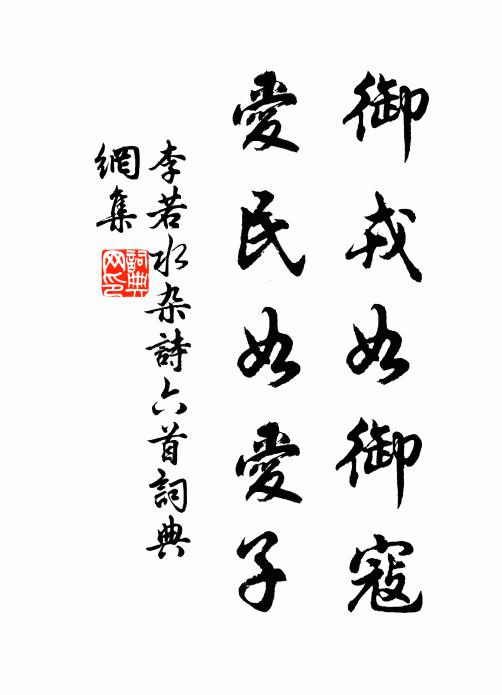 御戎如御寇
愛民如愛子
李若水杂詩六首詞典
網集
詞典
网印